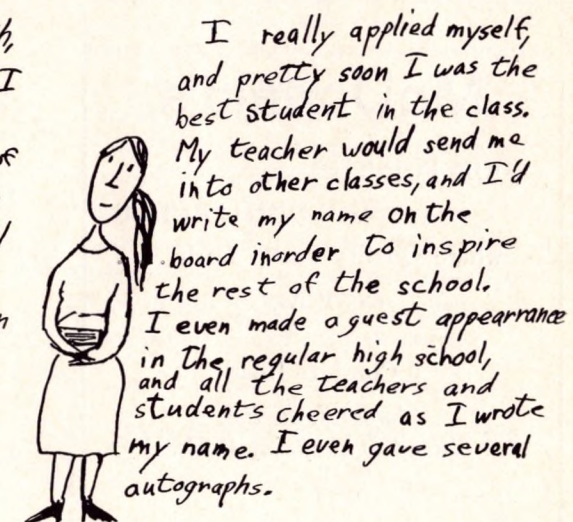 I really applied myself,
and pretty soon I was the
best student in the class.
My teacher would send me
into other classes, and I'd
write my name on the
board inorder to inspire
the rest of the school.
I even made a guest appearrance
in the regular high school,
and all the teachers and
students cheered as I wrote
my name. I even gave several
autographs.